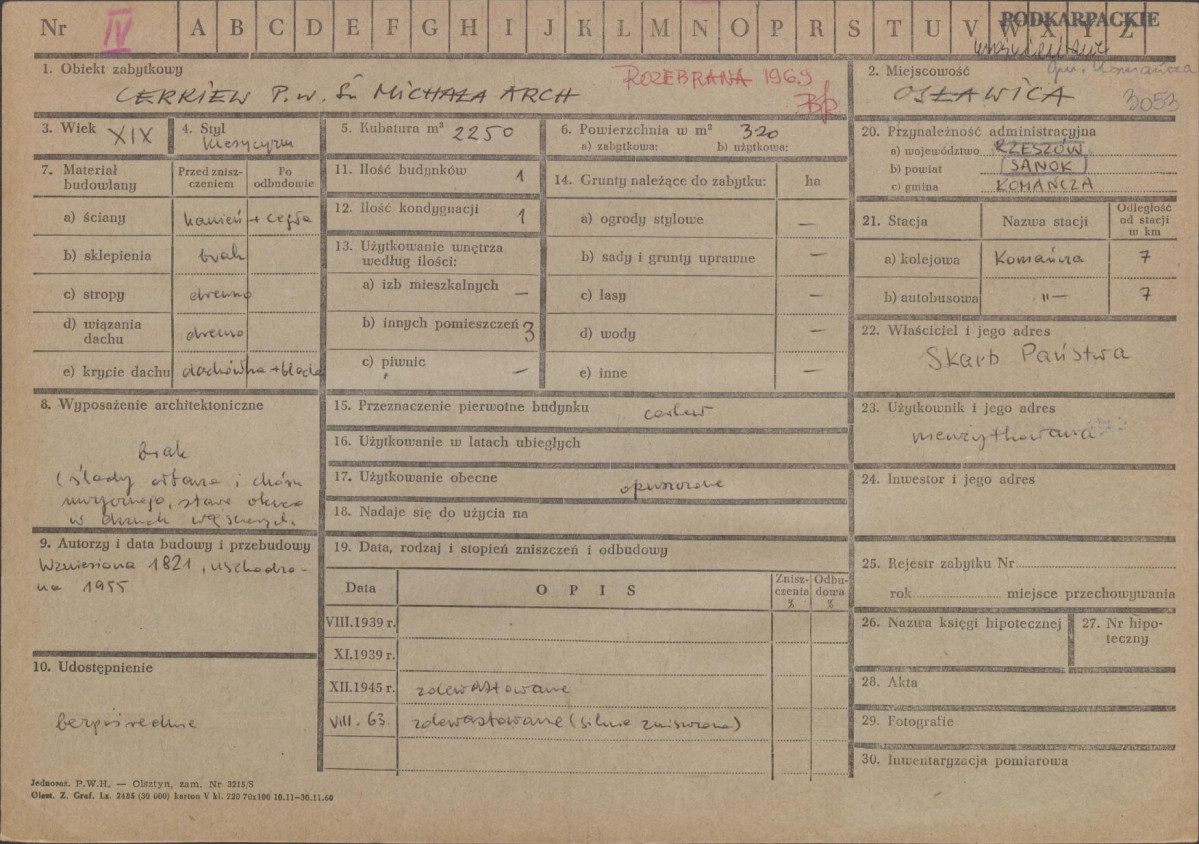 Nr IV A B C D E F G H I J K L M N O P R S T U V W X Y Z
PODKARPACKIE
gm. Komańcza
1. Obiekt zabytkowy
ROZEBRANA 1969
CERKIEW P.w. Św MICHAŁA ARCH
2. Miejscowość
OSŁAWICA 3053
3. Wiek XIX
4. Styl
klasycyzm
5. Kubatura m³ 2250
6. Powierzchnia w m² 320
a) zabytkowa: b) użytkowa:
7. Materiał budowlany
Przed znisz-
czeniem
Po
odbudowie
a) ściany kamień + cegła
b) sklepienia brak
c) stropy drewno
d) wiązania
dachu drewno
e) krycie dachu dachówka + blacha
8. Wyposażenie architektoniczne
brak
(ślady ołtarza i chóru
muzycznego, stare okucia
w drzwiach
9. Autorzy i data budowy i przebudowy
Wzniesiona 1821, uszkodzo-
na 1955
10. Udostępnienie
bezpośrednie
11. Ilość budynków 1
12. Ilość kondygnacji 1
13. Użytkowanie wnętrza
według ilości:
a) izb mieszkalnych —
b) innych pomieszczeń 3
c) piwnic —
14. Grunty należące do zabytku: ha
a) ogrody stylowe —
b) sady i grunty uprawne —
c) lasy —
d) wody —
e) inne —
15. Przeznaczenie pierwotne budynku cerkiew
16. Użytkowanie w latach ubiegłych
17. Użytkowanie obecne opuszczone
18. Nadaje się do użycia na
19. Data, rodzaj i stopień zniszczeń i odbudowy
Data O P I S Znisz-
czenia
% Odbu-
dowa
%
VIII.1939 r.
XI.1939 r.
XII.1945 r. zdewastowane
VIII. 63. zdewastowane (silnie zniszczona)
20. Przynależność administracyjna
a) województwo RZESZÓW
b) powiat SANOK
c) gmina KOMAŃCZA
21. Stacja Nazwa stacji Odległość
od stacji
w km
a) kolejowa Komańcza 7
b) autobusowa "— 7
22. Właściciel i jego adres
Skarb Państwa
23. Użytkownik i jego adres
nieużytkowana
24. Inwestor i jego adres
25. Rejestr zabytku Nr
rok miejsce przechowywania
26. Nazwa księgi hipotecznej
27. Nr hipo-
teczny
28. Akta
29. Fotografie
30. Inwentaryzacja pomiarowa
Jednoraz. P.W.H. — Olsztyn, zam. Nr 3215/S
Olszt. Z. Graf. Lz. 2485 (30 000) karton V kl. 220 70x100 10.11—30.11.60